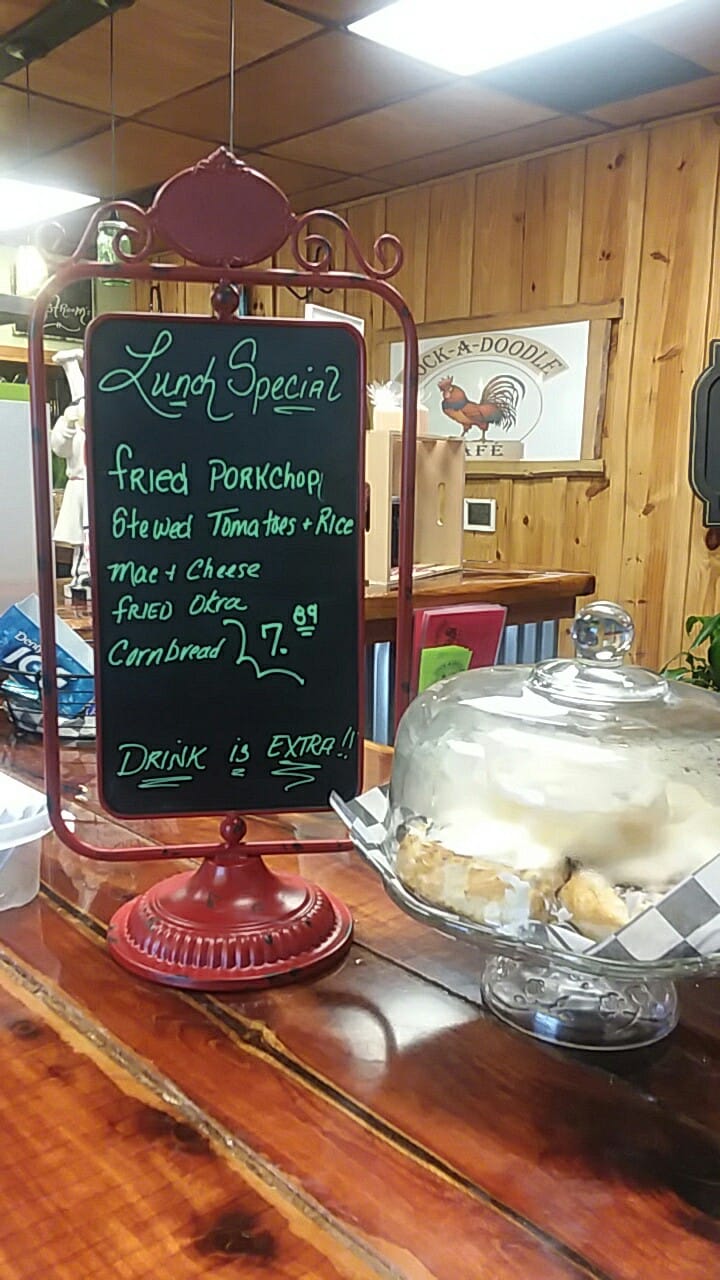 Lunch Special
fried Porkchop,
Stewed Tomatoes + Rice
Mac + Cheese
fried Okra
Cornbread 7.89
Drink is Extra!!
OCK-A-DOODLE
AFÉ
ICE